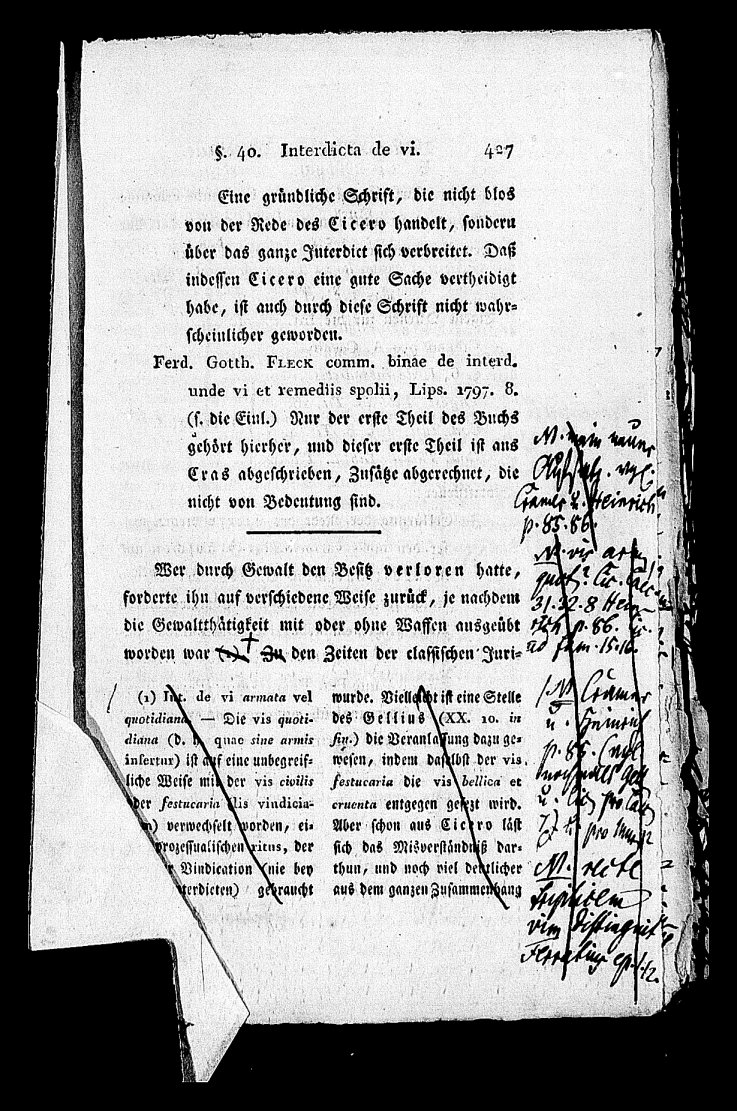 §. 40. Interdicta de vi. 427
Eine gründliche Schrift, die nicht blos
von der Rede des Cicero handelt, sondern
über das ganze Interdict sich verbreitet. Daß
indessen Cicero eine gute Sache vertheidigt
habe, ist auch durch diese Schrift nicht wahr=
scheinlicher geworden.
Ferd. Gotth. FLECK comm. binae de interd.
unde vi et remediis spolii, Lips. 1797. 8.
(s. die Einl.) Nur der erste Theil des Buchs
gehört hierher, und dieser erste Theil ist aus
Cras abgeschrieben, Zusätze abgerechnet, die
nicht von Bedeutung sind.
Wer durch Gewalt den Besitz verloren hatte,
forderte ihn auf verschiedene Weise zurück, je nachdem
die Gewaltthätigkeit mit oder ohne Waffen ausgeübt
worden war (1) † Zu den Zeiten der classischen Juri=
(1) Int. de vi armata vel
quotidiana. — Die vis quoti-
diana (d. h. quae sine armis
infertur) ist auf eine unbegreif=
liche Weise mit der vis civilis
oder festucaria (lis vindicia-
) verwechselt worden, ei=
prozessualischen ritus, der
Vindication (nie bey
terdicten) gebraucht
wurde. Vielleicht ist eine Stelle
des Gellius (XX. 10. in
fin.) die Veranlassung dazu ge=
wesen, indem daselbst der vis
festucaria die vis bellica et
cruenta entgegen gesetzt wird.
Aber schon aus Cicero läßt
sich das Misverständniß dar=
thun, und noch viel deutlicher
aus dem ganzen Zusammenhang
N. mein neuer
Aufsatz. vgl.
Cramer u. Heinrich
p. 85. 86.
N. vis
quot? Cic.
31. 32. 8
p. 86.
ad fam. 15. 16.
N. Cramer
u. Heinrich
p. 85.
u. Cic pro
u. pro
N. recte
triplicem
vim distinguit
Ferratius ep. 1. 12.